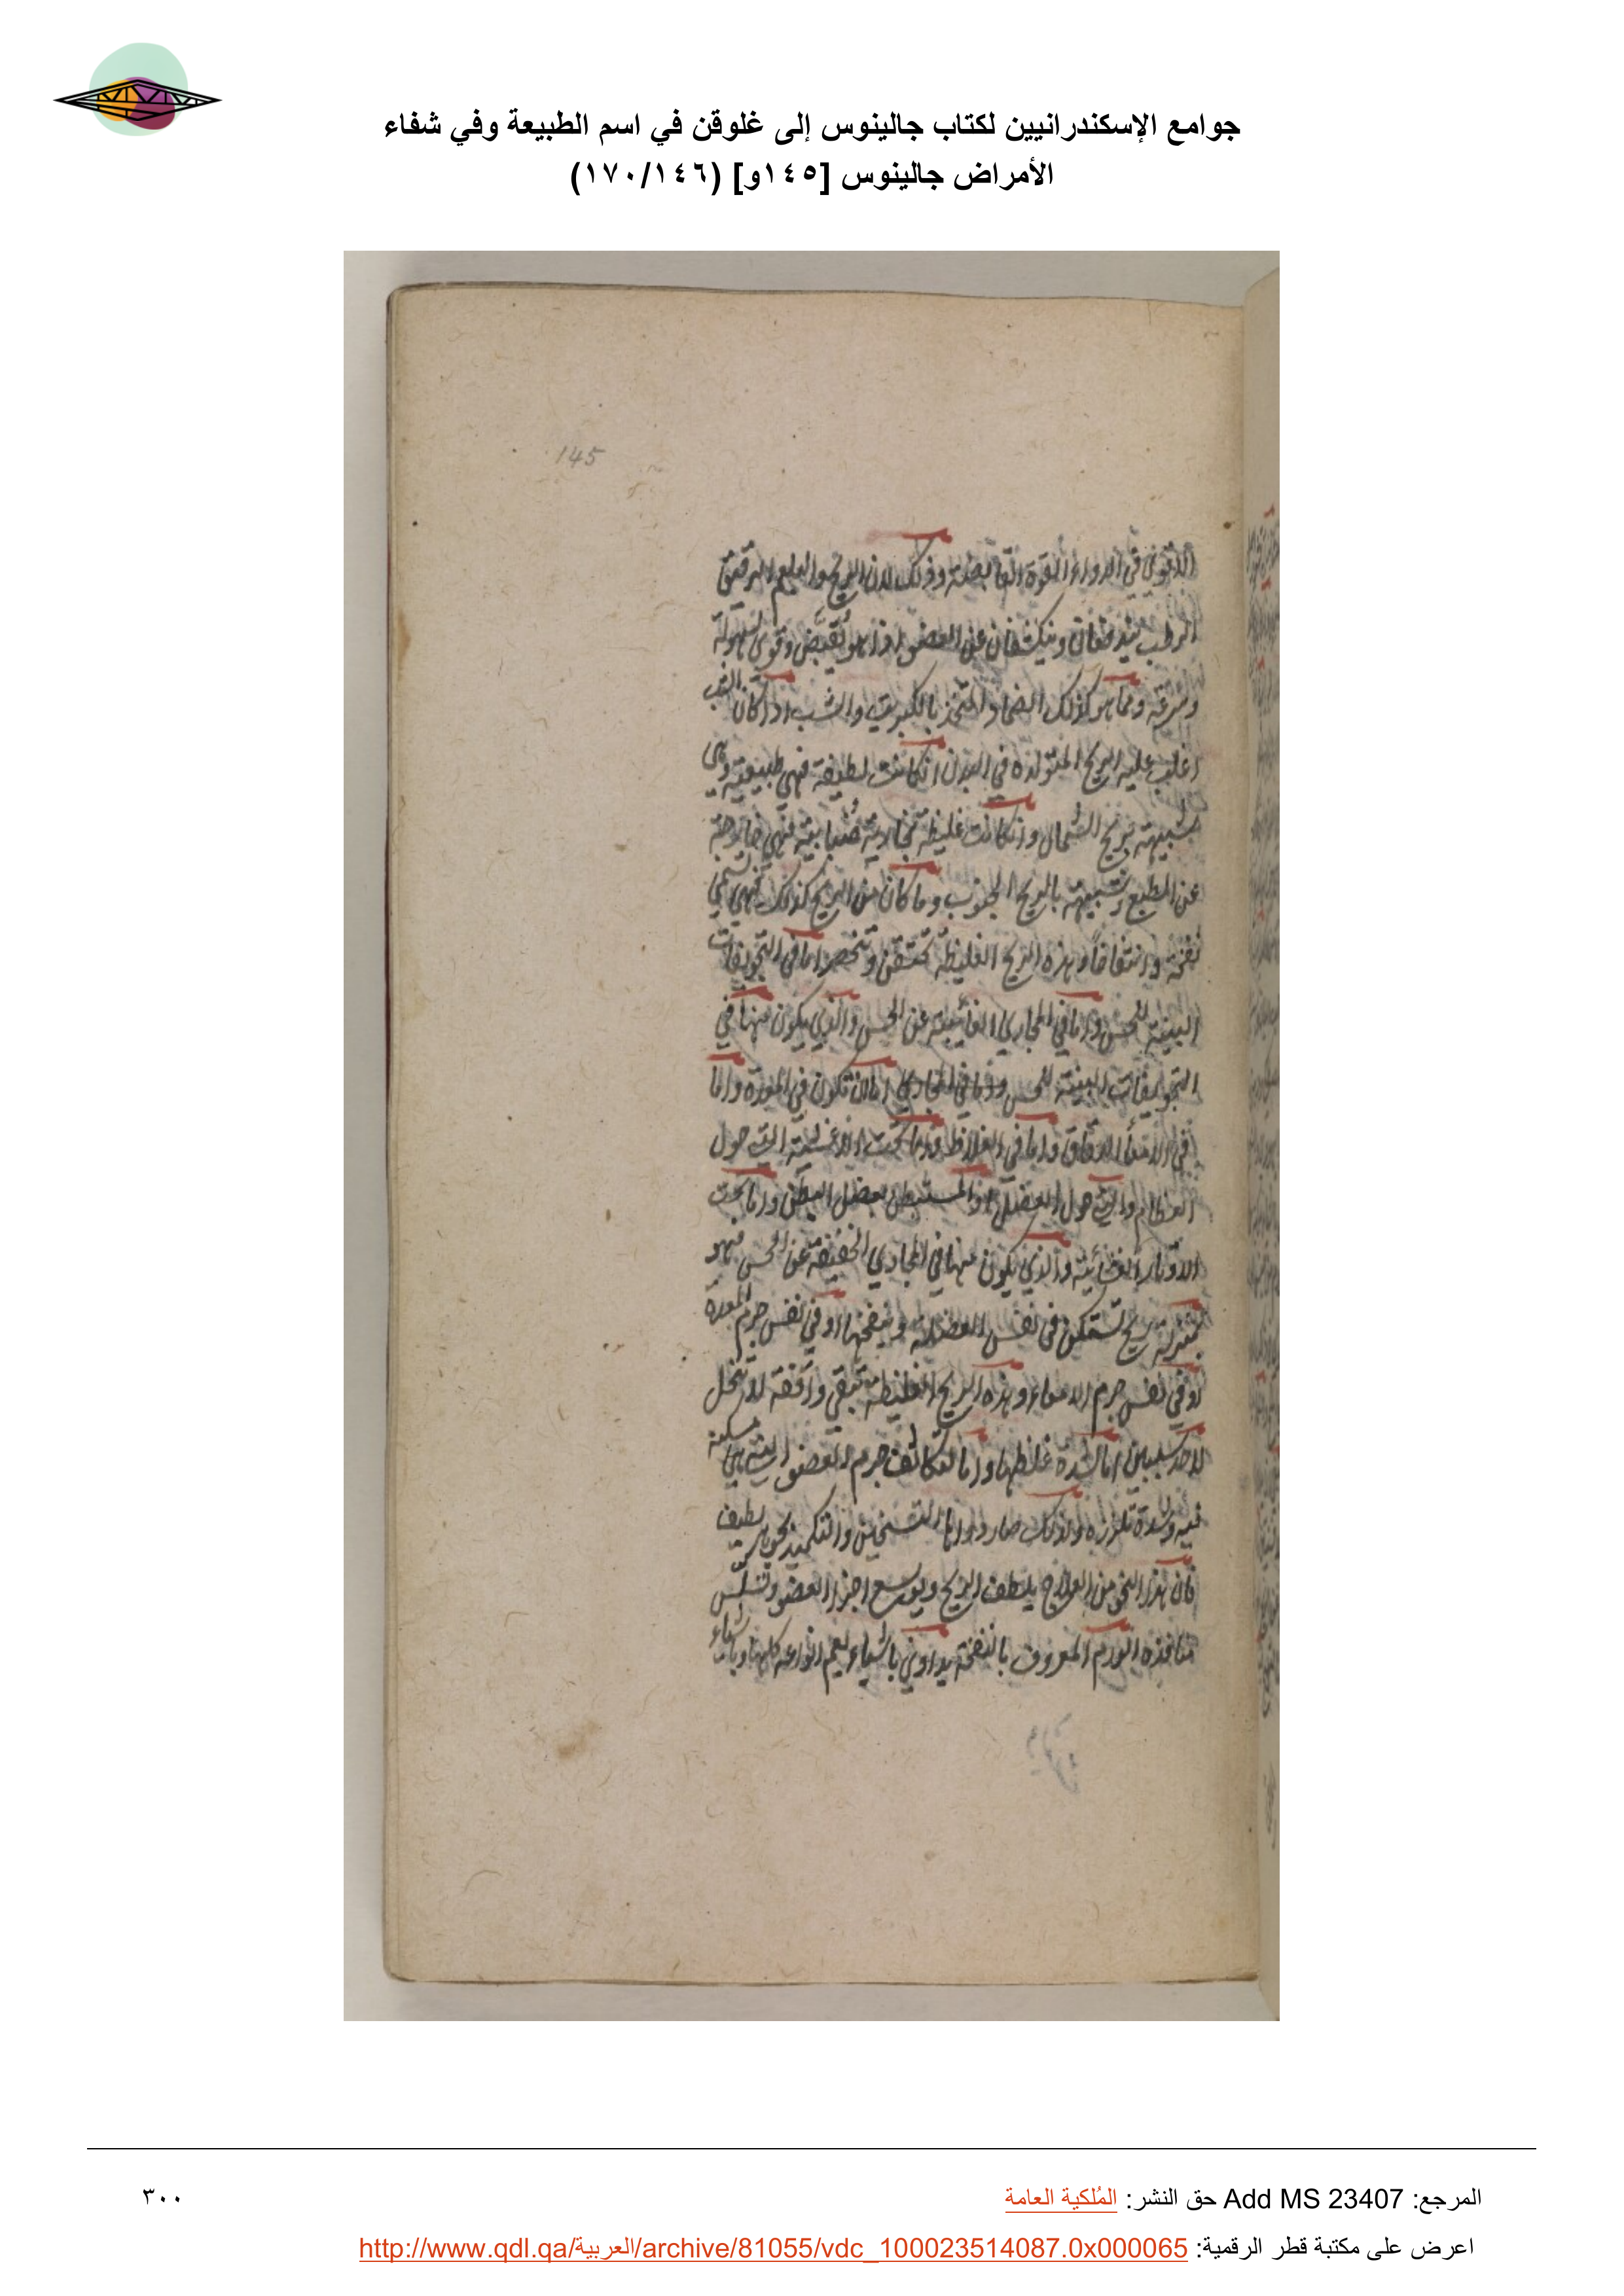 جوامع الإسكندرانيين لكتاب جالينوس إلى غلوقن في اسم الطبيعة وفي شفاء
الأمراض جالينوس [١٤٥و] (١٧٠/١٤٦)
145
الاقوى في الدواء القوة القابضة وذلك لان الريح والبلغم الرقيق
الرطب يندفعان وينكشفان عن العضو اذا هو تقبض وقوى بسهولة
وسرعة ومما هو كذلك الضماد المتخذ بالكبريت والشب اذا كان الشب
اغلب عليه الريح المتولدة في البدن ان كانت لطيفة فهي طبيعية وهي
شبيهة بريح الشمال وان كانت غليظة بخارية ضبابية فهي خارجة
عن الطبع وشبيهة بالريح الجنوب وما كان من الريح كذلك فهي تسمى
نفخة وانتفاخا وهذه الريح الغليظة تحتقن وتنحصر اما في التجويفات
البينة للحس واما في المجاري الغائبة عن الحس والذي يكون منها في
التجويفات البينة للحس واما في المجاري اما ان تكون في المعدة واما
في الامعاء الدقاق واما في الغلاظ واما تحت الاغشية التي حول
العظام والتي حول العضل او المستبطن لعضل البطن واما تحت
الاوتار الغشائية والذي يكون منها في المجاري الخفية عن الحس فهو
بمنزلة ريح تستكن في نفس العضلة وينفخها او في نفس جرم المعدة
او في نفس جرم الامعاء وهذه الريح الغليظة تبقى واقفة لا تنحل
لاحد سببين اما لشدة غلظها واما لتكاثف جرم العضو الذي هي مسكنة
فيه وشدة تلززه ولذلك صار دواءها التسخين والتكميد بجوهر لطيف
فان هذا النحو من العلاج يلطف الريح ويوسع اجزاء العضو وتسلس
منافذه الورم المعروف بالنفخة يداوى باشياء تعم انواعه كلها وباشياء
المرجع: Add MS 23407 حق النشر: المُلكية العامة
٣٠٠
اعرض على مكتبة قطر الرقمية: http://www.qdl.qa/العربية/archive/81055/vdc_100023514087.0x000065